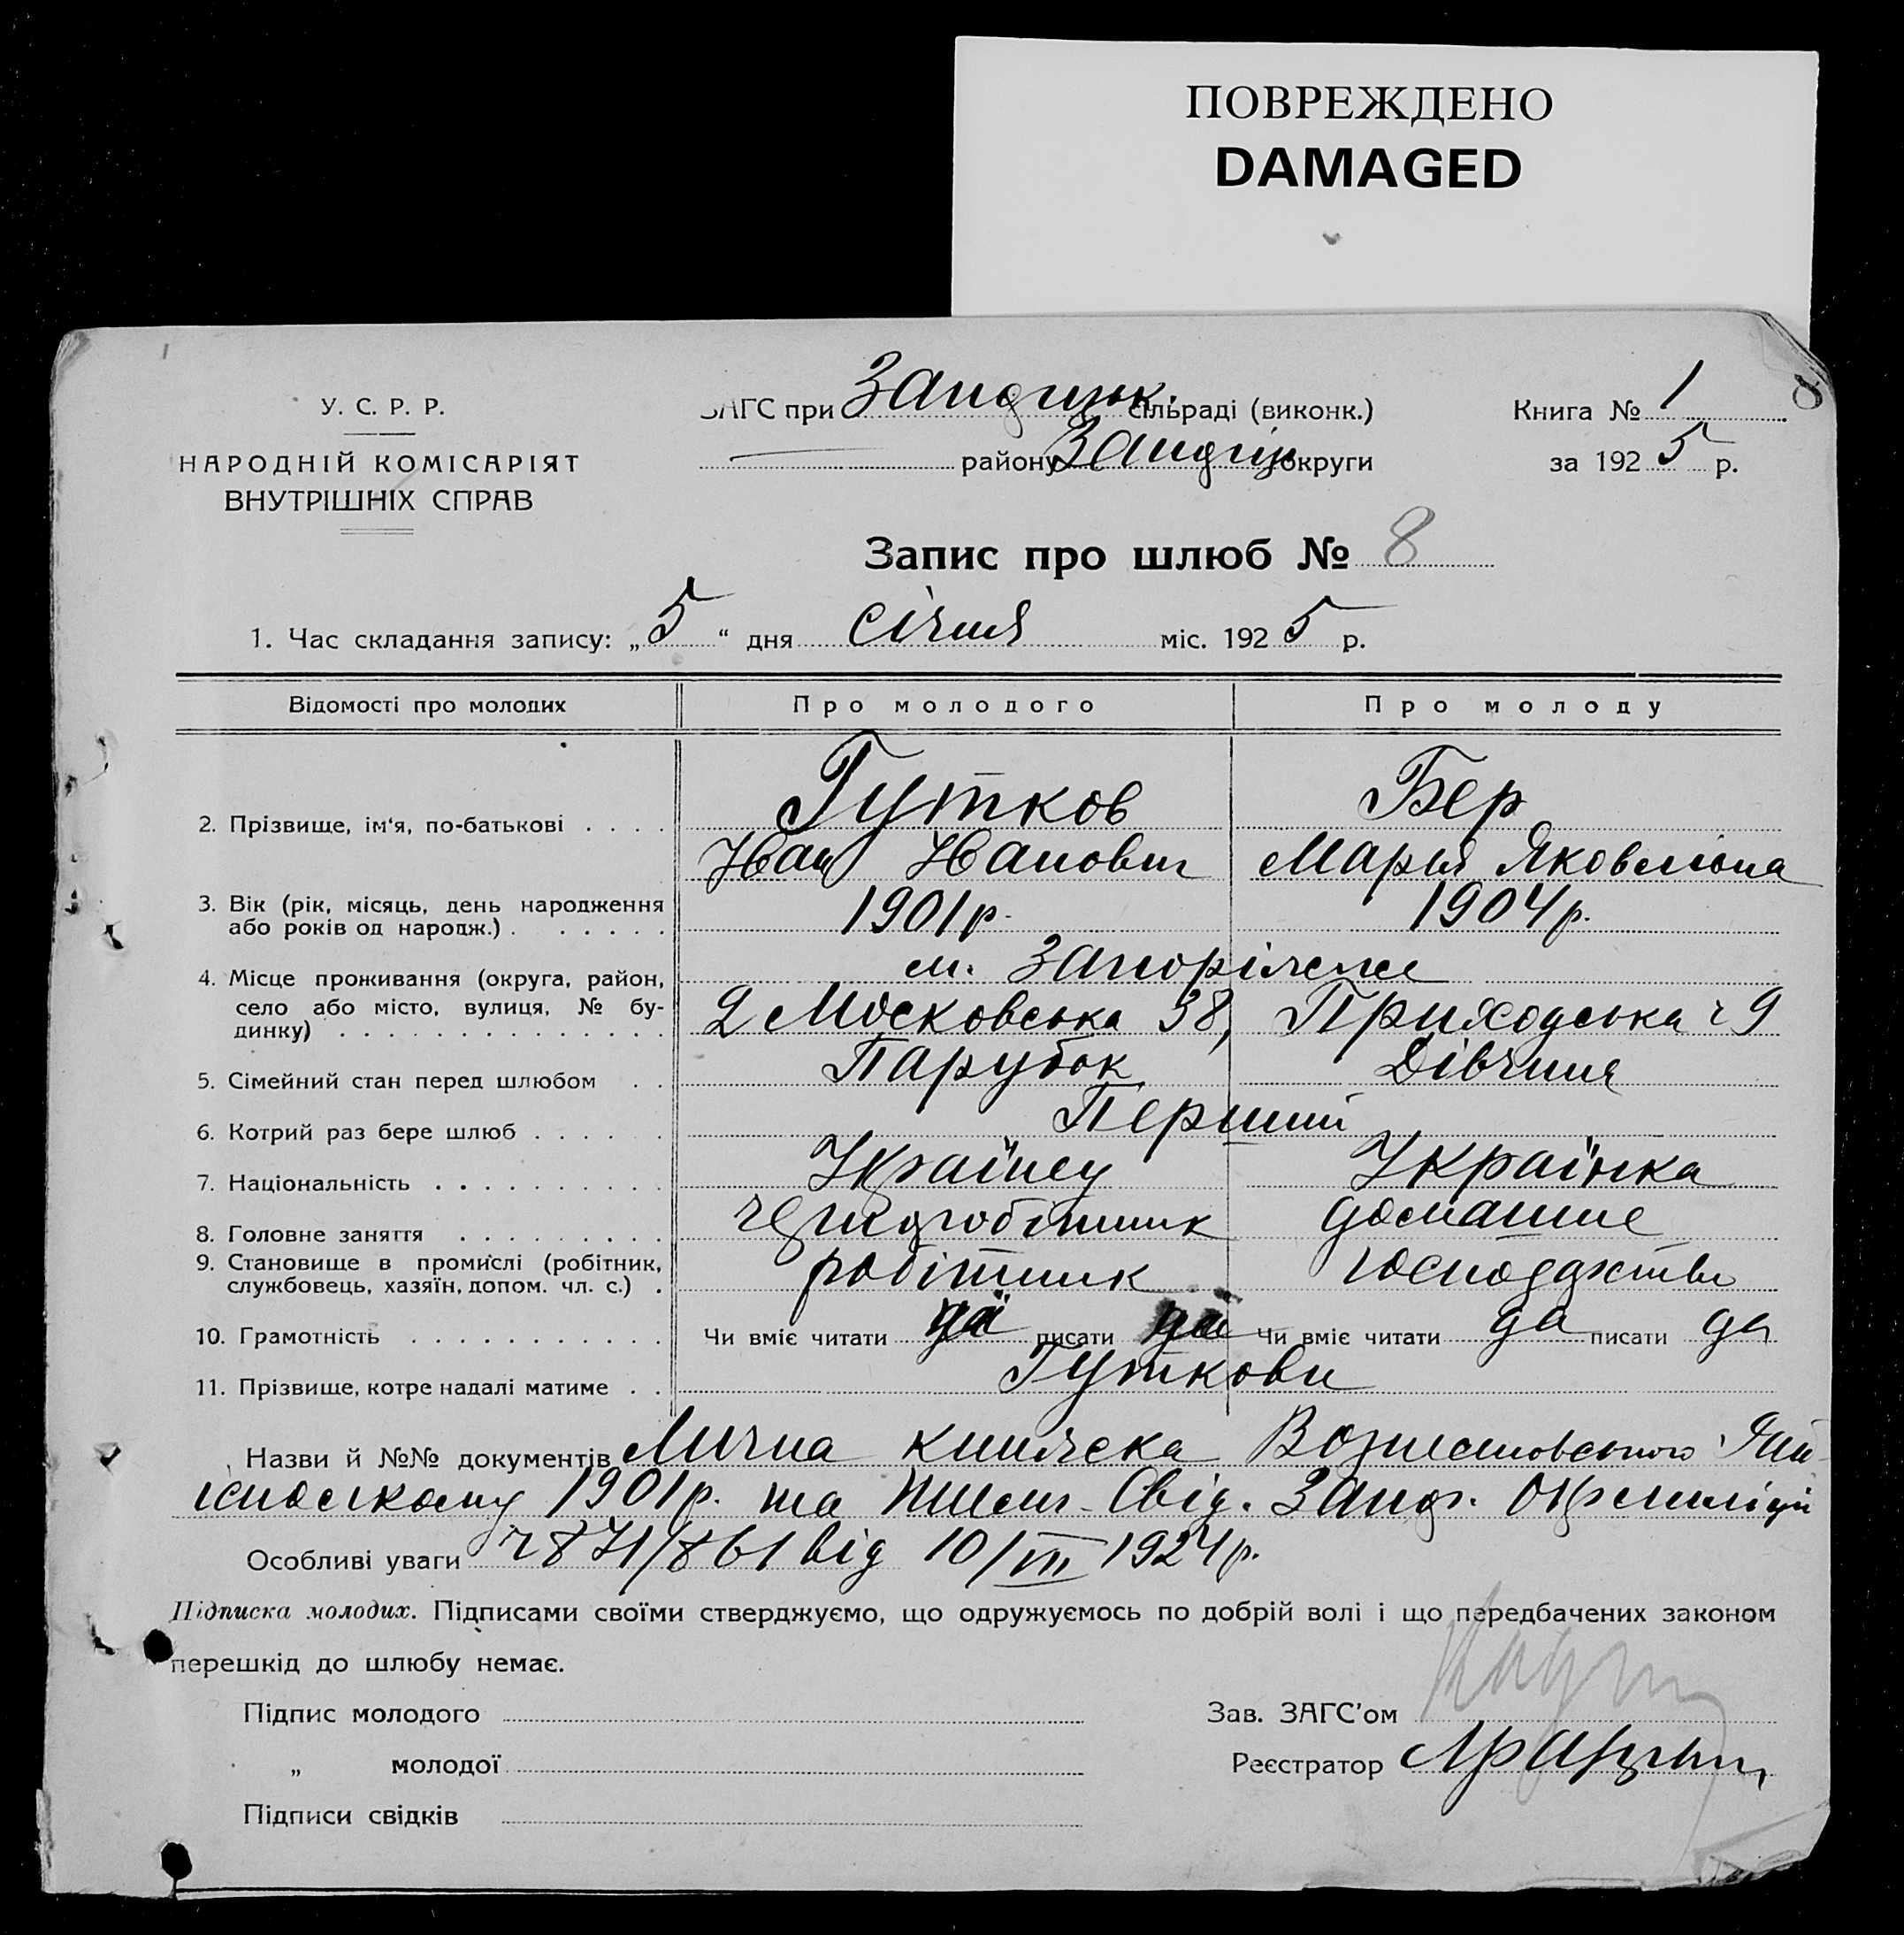 ПОВРЕЖДЕНО
DAMAGED
У. С. Р. Р.
НАРОДНІЙ КОМІСАРІЯТ
ВНУТРІШНІХ СПРАВ
ЗАГС при сільраді (виконк.)
району округи
Книга № 1
за 1925 р.
8
Запис про шлюб № 8
1. Час складання запису: „5“ дня січня міс. 1925 р.
Відомості про молодих Про молодого Про молоду
2. Прізвище, ім'я, по-батькові . . . . Гутков Бер
Иван Иванович Мария Яковлівна
3. Вік (рік, місяць, день народження
або років од народж.) . . . . . . 1901р. 1904р.
4. Місце проживання (округа, район, м. Запоріжжє
село або місто, вулиця, № бу-
динку) . . . . . . . . . . . . . . 2 Московська 38, Приходська ч 9
5. Сімейний стан перед шлюбом . . Парубок Дівчина
6. Котрий раз бере шлюб . . . . . . Перший
7. Національність . . . . . . . . . . Українец Українка
8. Головне заняття . . . . . . . . . черноробітник домашнє
9. Становище в промислі (робітник,
службовець, хазяїн, допом. чл. с.) . робітник господарство
10. Грамотність . . . . . . . . . . . Чи вміє читати да писати да Чи вміє читати да писати да
11. Прізвище, котре надалі матиме . . Гуткови
Назви й №№ документів Лична книжка Вознесеновського
1901р. та Свід. Запор.
Особливі уваги ч 871/861 від 10/VII 1924р.
Підписка молодих. Підписами своїми стверджуємо, що одружуємось по добрій волі і що передбачених законом
перешкід до шлюбу немає.
Підпис молодого
„ молодої
Підписи свідків
Зав. ЗАГС'ом
Реєстратор